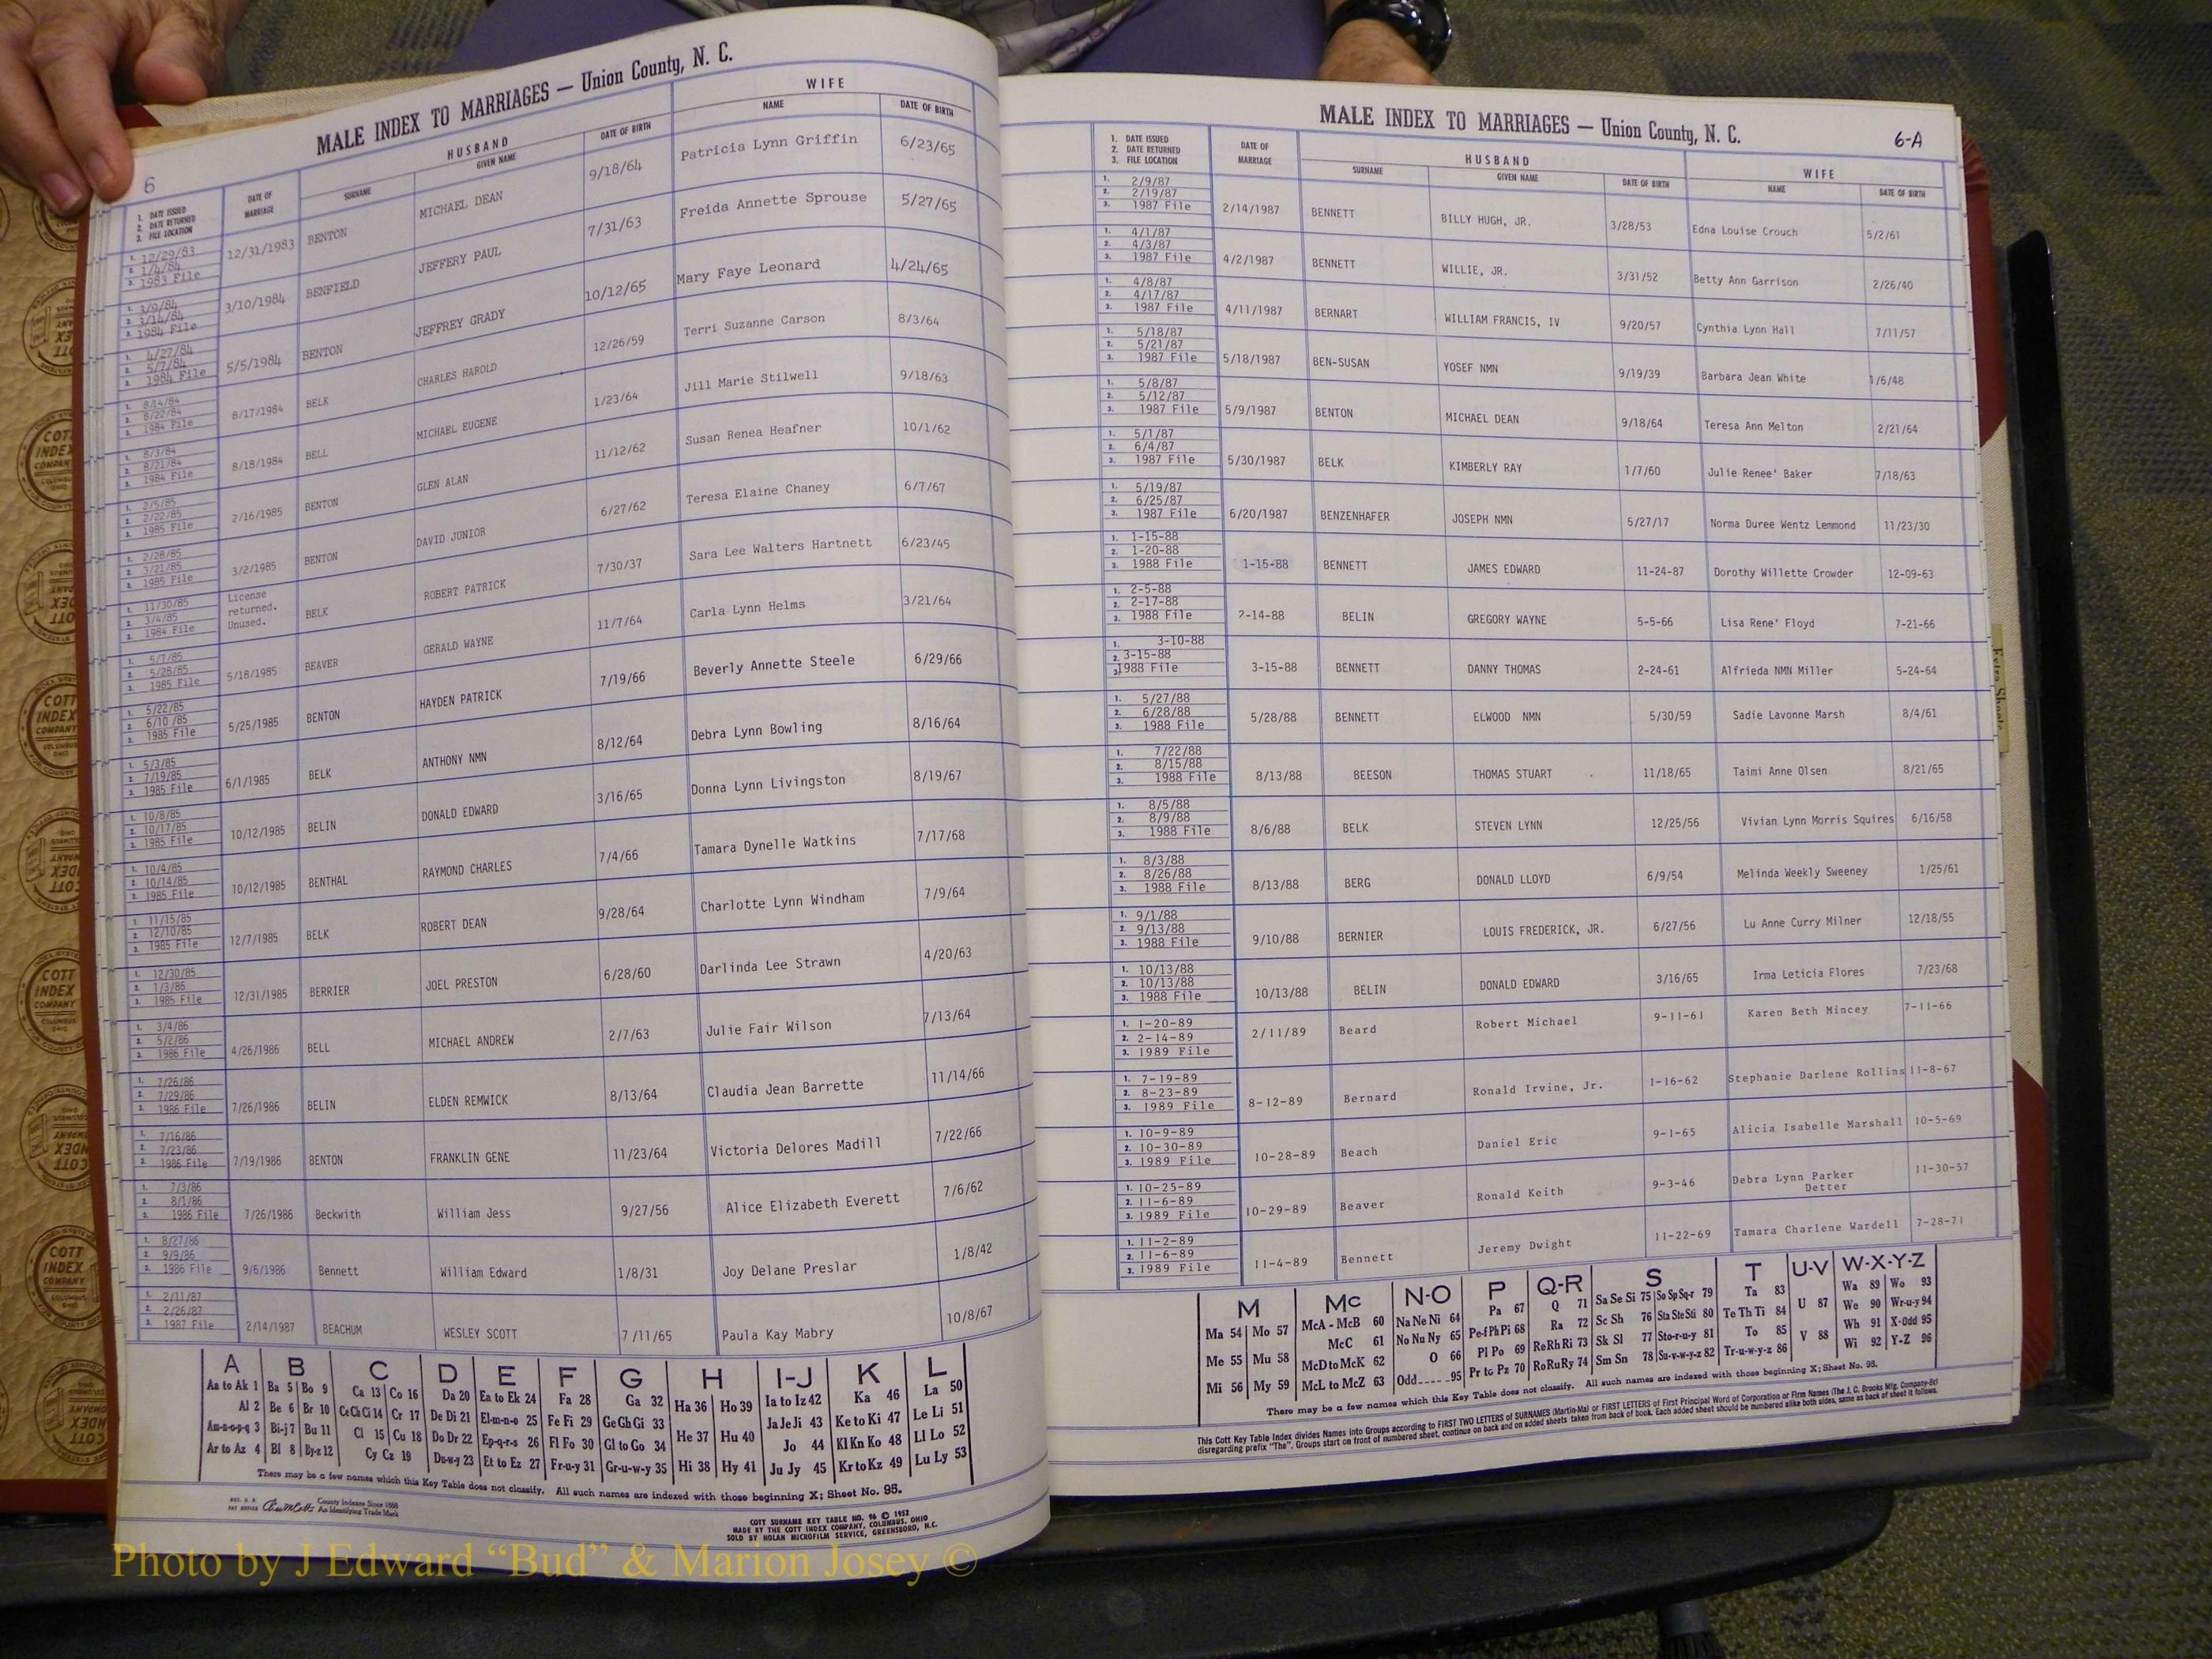 MALE INDEX TO MARRIAGES — Union County, N. C.
6
1. DATE ISSUED 2. DATE RETURNED 3. FILE LOCATION
DATE OF MARRIAGE
HUSBAND
SURNAME GIVEN NAME DATE OF BIRTH
WIFE
NAME DATE OF BIRTH
1. 12/29/83 2. 1/4/84 3. 1983 File 12/31/1983 BENTON MICHAEL DEAN 9/18/64 Patricia Lynn Griffin 6/23/65
1. 3/9/84 2. 3/14/84 3. 1984 File 3/10/1984 BENFIELD JEFFERY PAUL 7/31/63 Freida Annette Sprouse 5/27/65
1. 4/27/84 2. 5/7/84 3. 1984 File 5/5/1984 BENTON JEFFREY GRADY 10/12/65 Mary Faye Leonard 4/24/65
1. 8/14/84 2. 8/22/84 3. 1984 File 8/17/1984 BELK CHARLES HAROLD 12/26/59 Terri Suzanne Carson 8/3/64
1. 8/3/84 2. 8/21/84 3. 1984 File 8/18/1984 BELL MICHAEL EUGENE 1/23/64 Jill Marie Stilwell 9/18/63
1. 2/5/85 2. 2/22/85 3. 1985 File 2/16/1985 BENTON GLEN ALAN 11/12/62 Susan Renea Heafner 10/1/62
1. 2/28/85 2. 3/21/85 3. 1985 File 3/2/1985 BENTON DAVID JUNIOR 6/27/62 Teresa Elaine Chaney 6/7/67
1. 11/30/85 2. 3/4/85 3. 1984 File License returned. Unused. BELK ROBERT PATRICK 7/30/37 Sara Lee Walters Hartnett 6/23/45
1. 5/7/85 2. 5/28/85 3. 1985 File 5/18/1985 BEAVER GERALD WAYNE 11/7/64 Carla Lynn Helms 3/21/64
1. 5/22/85 2. 6/10/85 3. 1985 File 5/25/1985 BENTON HAYDEN PATRICK 7/19/66 Beverly Annette Steele 6/29/66
1. 5/3/85 2. 7/19/85 3. 1985 File 6/1/1985 BELK ANTHONY NMN 8/12/64 Debra Lynn Bowling 8/16/64
1. 10/8/85 2. 10/17/85 3. 1985 File 10/12/1985 BELIN DONALD EDWARD 3/16/65 Donna Lynn Livingston 8/19/67
1. 10/4/85 2. 10/14/85 3. 1985 File 10/12/1985 BENTHAL RAYMOND CHARLES 7/4/66 Tamara Dynelle Watkins 7/17/68
1. 11/15/85 2. 12/10/85 3. 1985 File 12/7/1985 BELK ROBERT DEAN 9/28/64 Charlotte Lynn Windham 7/9/64
1. 12/30/85 2. 1/3/86 3. 1985 File 12/31/1985 BERRIER JOEL PRESTON 6/28/60 Darlinda Lee Strawn 4/20/63
1. 3/4/86 2. 5/2/86 3. 1986 File 4/26/1986 BELL MICHAEL ANDREW 2/7/63 Julie Fair Wilson 7/13/64
1. 7/26/86 2. 7/29/86 3. 1986 File 7/26/1986 BELIN ELDEN REMWICK 8/13/64 Claudia Jean Barrette 11/14/66
1. 7/16/86 2. 7/23/86 3. 1986 File 7/19/1986 BENTON FRANKLIN GENE 11/23/64 Victoria Delores Madill 7/22/66
1. 7/3/86 2. 8/1/86 3. 1986 File 7/26/1986 Beckwith William Jess 9/27/56 Alice Elizabeth Everett 7/6/62
1. 8/27/86 2. 9/9/86 3. 1986 File 9/6/1986 Bennett William Edward 1/8/31 Joy Delane Preslar 1/8/42
1. 2/11/87 2. 2/26/87 3. 1987 File 2/14/1987 BEACHUM WESLEY SCOTT 7/11/65 Paula Kay Mabry 10/8/67
A B C D E F G H I-J K L
Aa to Ak 1 Ba 5 Bo 9 Ca 13 Co 16 Da 20 Ea to Ek 24 Fa 28 Ga 32 Ha 36 Ho 39 Ia to Iz 42 Ka 46 La 50
Al 2 Be 6 Br 10 Ce Ch Ci 14 Cr 17 De Di 21 El-m-n-o 25 Fe Fi 29 Ge Gh Gi 33 He 37 Hu 40 Ja Je Ji 43 Ke to Ki 47 Le Li 51
Am-n-o-p-q 3 Bi-j 7 Bu 11 Cl 15 Cu 18 Do Dr 22 Ep-q-r-s 26 Fl Fo 30 Gl to Go 34 Jo 44 Kl Kn Ko 48 Ll Lo 52
Ar to Az 4 Bl 8 By-z 12 Cy Cz 19 Du-w-y 23 Et to Ez 27 Fr-u-y 31 Gr-u-w-y 35 Hi 38 Hy 41 Ju Jy 45 Kr to Kz 49 Lu Ly 53
There may be a few names which this Key Table does not classify. All such names are indexed with those beginning X; Sheet No. 95.
County Indexes Since 1888
An Identifying Trade Mark
COTT SURNAME KEY TABLE NO. 96 © 1952
MADE BY THE COTT INDEX COMPANY, COLUMBUS, OHIO
SOLD BY NOLAN MICROFILM SERVICE, GREENSBORO, N.C.
MALE INDEX TO MARRIAGES — Union County, N. C.
6-A
1. DATE ISSUED 2. DATE RETURNED 3. FILE LOCATION
DATE OF MARRIAGE
HUSBAND
SURNAME GIVEN NAME DATE OF BIRTH
WIFE
NAME DATE OF BIRTH
1. 2/9/87 2. 2/19/87 3. 1987 File 2/14/1987 BENNETT BILLY HUGH, JR. 3/28/53 Edna Louise Crouch 5/2/61
1. 4/1/87 2. 4/3/87 3. 1987 File 4/2/1987 BENNETT WILLIE, JR. 3/31/52 Betty Ann Garrison 2/26/40
1. 4/8/87 2. 4/17/87 3. 1987 File 4/11/1987 BERNART WILLIAM FRANCIS, IV 9/20/57 Cynthia Lynn Hall 7/11/57
1. 5/18/87 2. 5/21/87 3. 1987 File 5/18/1987 BEN-SUSAN YOSEF NMN 9/19/39 Barbara Jean White 1/6/48
1. 5/8/87 2. 5/12/87 3. 1987 File 5/9/1987 BENTON MICHAEL DEAN 9/18/64 Teresa Ann Melton 2/21/64
1. 5/1/87 2. 6/4/87 3. 1987 File 5/30/1987 BELK KIMBERLY RAY 1/7/60 Julie Renee' Baker 7/18/63
1. 5/19/87 2. 6/25/87 3. 1987 File 6/20/1987 BENZENHAFER JOSEPH NMN 5/27/17 Norma Duree Wentz Lemmond 11/23/30
1. 1-15-88 2. 1-20-88 3. 1988 File 1-15-88 BENNETT JAMES EDWARD 11-24-87 Dorothy Willette Crowder 12-09-63
1. 2-5-88 2. 2-17-88 3. 1988 File 2-14-88 BELIN GREGORY WAYNE 5-5-66 Lisa Rene' Floyd 7-21-66
1. 3-10-88 2. 3-15-88 3. 1988 File 3-15-88 BENNETT DANNY THOMAS 2-24-61 Alfrieda NMN Miller 5-24-64
1. 5/27/88 2. 6/28/88 3. 1988 File 5/28/88 BENNETT ELWOOD NMN 5/30/59 Sadie Lavonne Marsh 8/4/61
1. 7/22/88 2. 8/15/88 3. 1988 File 8/13/88 BEESON THOMAS STUART 11/18/65 Taimi Anne Olsen 8/21/65
1. 8/5/88 2. 8/9/88 3. 1988 File 8/6/88 BELK STEVEN LYNN 12/25/56 Vivian Lynn Morris Squires 6/16/58
1. 8/3/88 2. 8/26/88 3. 1988 File 8/13/88 BERG DONALD LLOYD 6/9/54 Melinda Weekly Sweeney 1/25/61
1. 9/1/88 2. 9/13/88 3. 1988 File 9/10/88 BERNIER LOUIS FREDERICK, JR. 6/27/56 Lu Anne Curry Milner 12/18/55
1. 10/13/88 2. 10/13/88 3. 1988 File 10/13/88 BELIN DONALD EDWARD 3/16/65 Irma Leticia Flores 7/23/68
1. 1-20-89 2. 2-14-89 3. 1989 File 2/11/89 Beard Robert Michael 9-11-61 Karen Beth Mincey 7-11-66
1. 7-19-89 2. 8-23-89 3. 1989 File 8-12-89 Bernard Ronald Irvine, Jr. 1-16-62 Stephanie Darlene Rollins 11-8-67
1. 10-9-89 2. 10-30-89 3. 1989 File 10-28-89 Beach Daniel Eric 9-1-65 Alicia Isabelle Marshall 10-5-69
1. 10-25-89 2. 11-6-89 3. 1989 File 10-29-89 Beaver Ronald Keith 9-3-46 Debra Lynn Parker Detter 11-30-57
1. 11-2-89 2. 11-6-89 3. 1989 File 11-4-89 Bennett Jeremy Dwight 11-22-69 Tamara Charlene Wardell 7-28-71
M Mc N-O P Q-R S T U-V W-X-Y-Z
Ma 54 Mo 57 McA - McB 60 Na Ne Ni 64 Pa 67 Q 71 Sa Se Si 75 So Sp Sq-r 79 Ta 83 U 87 Wa 89 Wo 93
Me 55 Mu 58 McC 61 No Nu Ny 65 Pe-f Ph Pi 68 Ra 72 Sc Sh 76 Sta Ste Sti 80 Te Th Ti 84 V 88 We 90 Wr-u-y 94
McD to McK 62 O 66 Pl Po 69 Re Rh Ri 73 Sk Sl 77 Sto-r-u-y 81 To 85 Wh 91 X-Odd 95
Mi 56 My 59 McL to McZ 63 Odd_____95 Pr to Pz 70 Ro Ru Ry 74 Sm Sn 78 Su-v-w-y-z 82 Tr-u-w-y-z 86 Wi 92 Y-Z 96
There may be a few names which this Key Table does not classify. All such names are indexed with those beginning X; Sheet No. 95.
This Cott Key Table Index divides Names into Groups according to FIRST TWO LETTERS of SURNAMES (Martin-Ma) or FIRST LETTERS of First Principal Word of Corporation or Firm Names (The J. C. Brooks Mfg. Company-Br)
disregarding prefix "The". Groups start on front of numbered sheet, continue on back and on added sheets taken from back of book. Each added sheet should be numbered alike both sides, same as back of sheet it follows.
Extra Sheets
COTT INDEX COMPANY COLUMBUS OHIO
Photo by J Edward “Bud” & Marion Josey ©